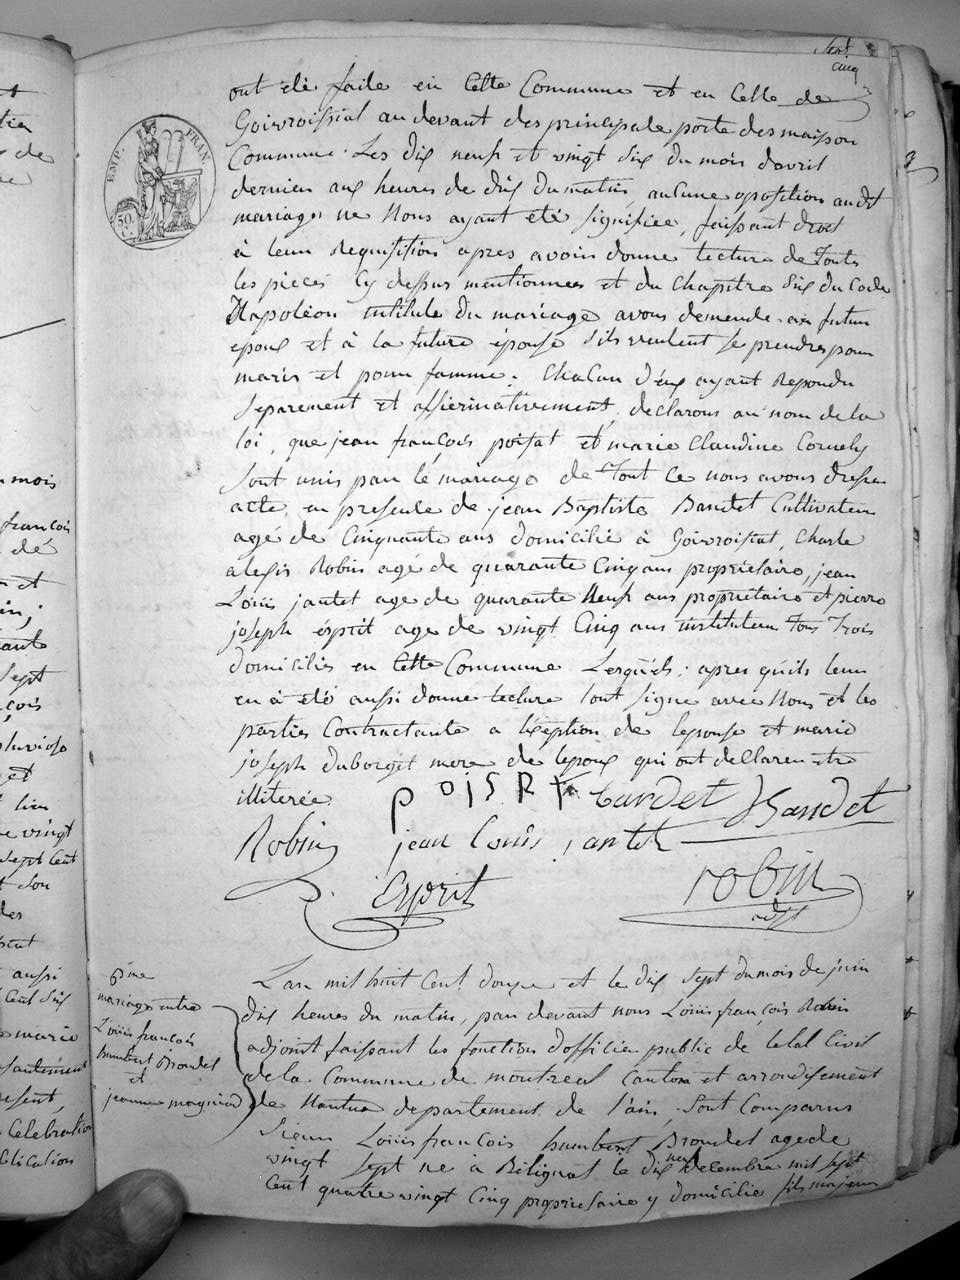 Sept
cinq
ont été faite en Cette Commune et en Celle de
Goivroissiat audevant des principale porte des maison
Commune. Les dix neuf et vingt six du mois davril
dernier aux heures de dix du matin, aucune oposition audt
mariage ne Nous ayant été signifiée, faissant droit
à leur Requisition apres avoir donne lecture de touts
les pieces Cy dessus mentionnees et du Chapitre six du Code
Napoléon intitule du mariage avons demende au futur
epoux et à la future épouse s'ils veulent se prendre pour
maris et pour famme; Chacun d'eux ayant Repondu
separement et affierinativement, declarons au nom de la
loi, que jean françois poisat et marie Claudine Cornely
sont unis par le mariage de tout Ce nous avons dressé
acte, en presence de jean Baptiste Baudet Cultivateur
agé de Cinquante ans domicilié à Goivroissiat, Charle
alexis Robin agé de quarante Cinq ans proprietaire, jean
Loüis jantet age de quarante Neuf ans propriétaire et pierre
joseph ésprit age de vingt Cinq ans instituteur tous trois
domicilies en Cette Commune Lesquels; apres qu'ils leur
en à été aussi donne lecture tont signe avec Nous et les
parties Contractante a léxéption de lepouse et marie
joseph duborgit mere de lepoux qui ont declaren etre
illiterée
poisat tardet Baudet
Robin jean Louis jantet
Esprit robin
adjt
6me
mariage entre
Loüis françois
humbert Brondet
et
jeanne magnin
Lan mil huit Cent douze et le dix sept du mois de juin
dix heures du matin, par devant nous Loüis françois Robin
adjoint faissant les fonctions d'officier public de letat Civil
de la Commune de montreal Canton et arrondissement
de Nantua departement de l'ain, sont Comparus
sieur Loüis françois humbert Brondet age de
vingt sept né à Bélignat le dix neuf decembre mil sept
Cent quatre vingt Cinq proprietaire y domicilie fils majeur
EMP. FRAN.
50.
C.
mois
françois
dé
et
sept
pluviose
et
lieu
vingt
sept Cent
son
des
aussi
Cent dix
marie
Celebration